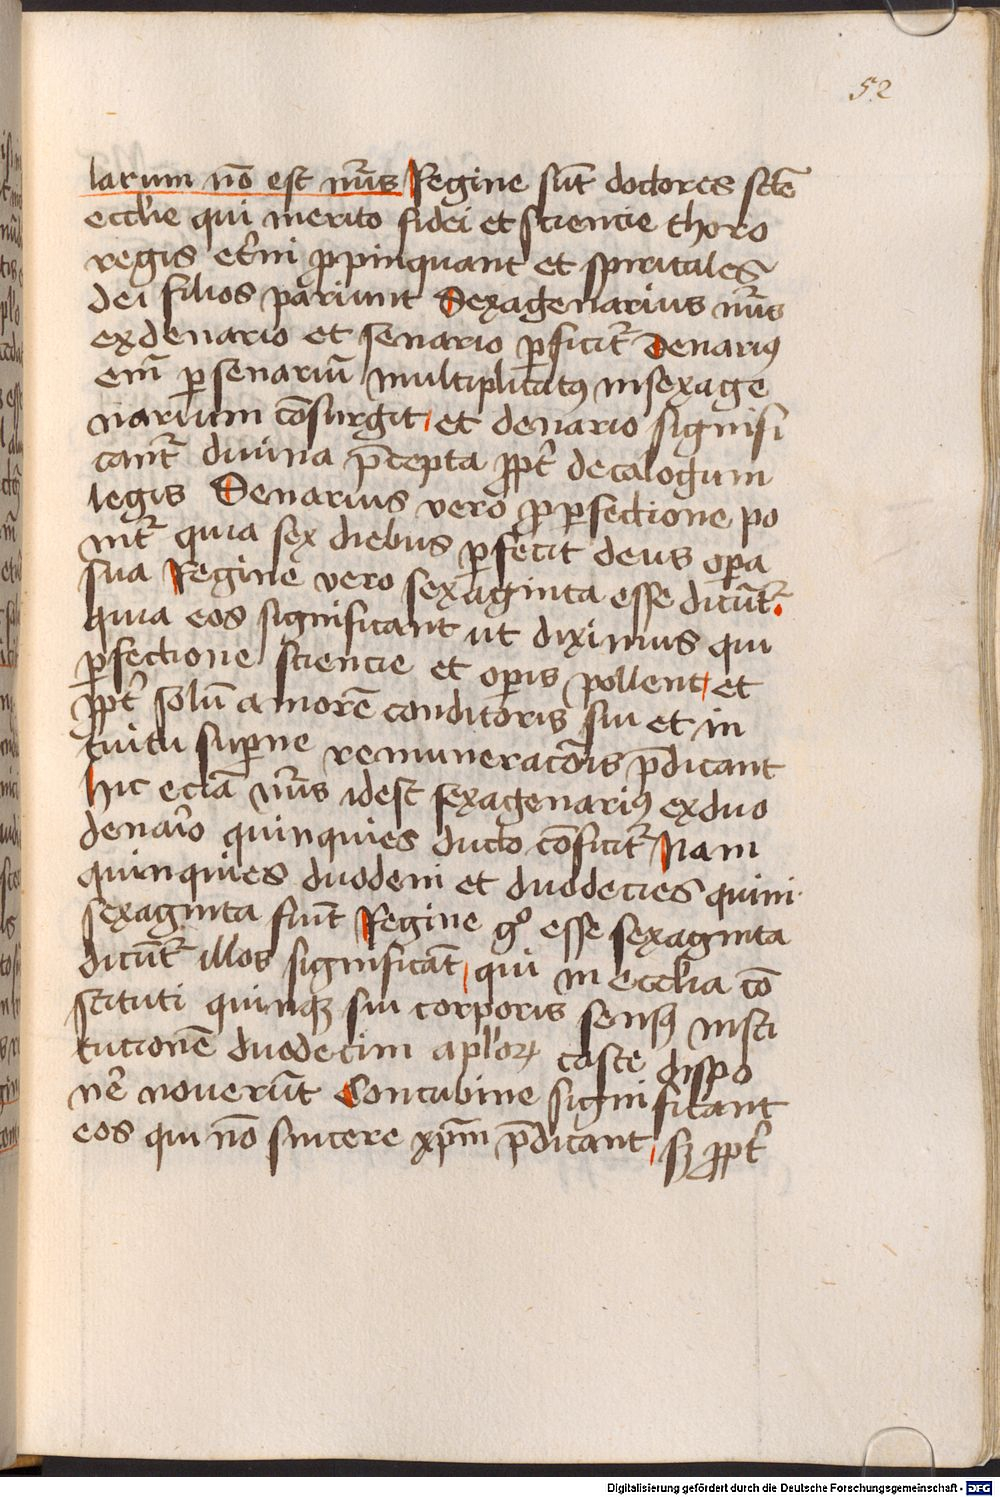 52
larum nō est nūs Regine sūt doctores scte
ecclie qui merito fidei et sciencie thoro
regis etni ppinquant et spiritales
dei filios pariunt Sexagenarius nūs
ex denario et senario pficit Denarius
em p senariū multiplicatus in sexage
narium cōsurgit et denario signifi
cant diuina pcepta ppt decalogum
legis Senarius vero p pfectione po
nit quia sex diebus pfecit deus opa
sua Regine vero sexaginta esse dicūt
quia eos significant ut diximus qui
pfectione sciencie et opis pollent et
ppt solū amorē conditoris sui et in
tuitu supne remuneracōis pdicant
hic eciā nūs idest sexagenarius ex duo
denario quinquies ducto cōficit Nam
quinquies duodeni et duodecies quini
sexaginta fiūt Regine gͦ esse sexaginta
dicūt illos significāt qui in ecclia cō
stituti quinqꝫ sui corporis sensus insti
tucionē duodecim aploꝝ caste dispo
ne nouerūt Concubine significant
eos qui nō sincere xpm pdicant sꝫ ppt
Digitalisierung gefördert durch die Deutsche Forschungsgemeinschaft - DFG